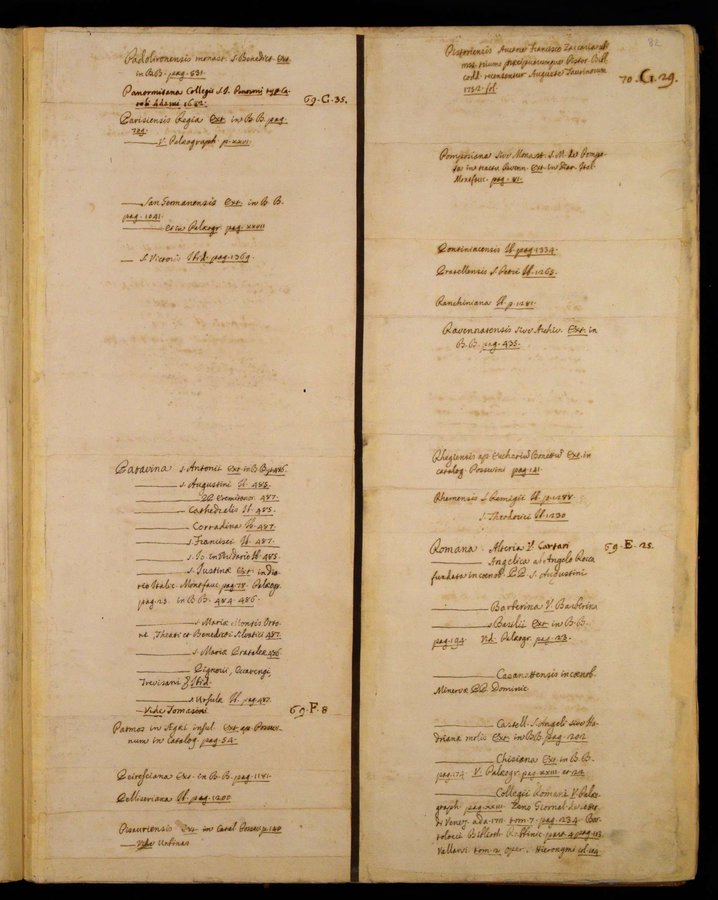 Padolironensis monast. S. Benedict. Ext.
in B.B. pag. 531.
Panormitana Collegii S.J. Panormi typ. Ca-
roli Adami 1682. 69.C.35.
Parisiensis Regia Ext. in B.B. pag.
709.
—— V. Palæograph. p. xxvi.
—— San Germanensis Ext. in B.B.
pag. 1041.
—— et in Palæogr. pag. xxvii
— S. Victoris Ibid. pag. 1369.
Patavina S. Antonii Ext. in B.B. p. 486.
—— S. Augustini It. 488.
—— PP. Eremitanor. 487.
—— Cathedralis It. 485.
—— Corradina It. 487.
—— S. Francisci It. 487.
—— S. Jo. in Viridario It. 485.
—— S. Justinæ Ext. in Dia-
rio Italic. Montfauc. pag. 78. Palæogr.
pag. 23. in B.B. 484. 486.
—— S. Mariæ Montis Orto-
ne, Theat. et Benedicti Salvatici 487.
—— S. Maria Prataleæ 486
—— Pignorii, Cicarengi,
Trevisani Ibid.
—— S. Ursulæ It. pag. 487.
—— Vide Tomasini. 69.F.8
Patmos in Ægei insul. Ext. ap. Possevi-
num in Catalog. pag. 54.
Peiresciana Ext. in B.B. pag. 1181.
Pelliseriana It. pag. 1200
Pisauriensis Ext. in Catal. Possev. p. 140
—— Vide Urbinas
82
Pistoriensis Auctore Francisco Zaccaria
codd. recensentur Augustæ Taurinorum
1752. fol. 70.G.29.
Pomposiana sive Monast. S. M. de Pompo-
sa in tractu Ravenn. Ext. in Diar. Ital.
Montfauc. pag. 81.
Pontiniacensis It. pag. 1334.
Pratellensis S. Petri It. 1265.
Ranchiniana It. p. 1281.
Ravennatensis sive Archiv. Ext. in
B.B. pag. 435.
Rhegiensis ap. Ext. in
catalog. Possevini pag. 141.
Rhemensis S. Remigii It. p. 1288.
S. Theodorici It. 1230
Romana Alteria V. Cartari 69.E.25.
—— Angelica ab Angelo Roca
fundata in coenob. PP. S. Augustini
—— Barberina V. Barberina
—— S. Basilii Ext. in B.B.
pag. 194. Vid. Palæogr. pag. 23.
—— Casanattensis in coenob.
Minervæ PP. Dominic.
—— Castell. S. Angeli sive Ha-
drianæ molis Ext. in B.B. pag. 202
—— Chisiana Ext. in B.B.
pag. 174. V. Palæogr. pag. xxiii et 22.
—— Collegii Romani V. Palæo-
graph. pag. xxiii. Zeno Giornal. de' Letter.
di Venez. 1711 tom. 7. pag. 234. Bar-
tolocii Biblioth. Rabbinic. part. 4. pag. 113.
Vallarsi tom. 2. oper. Hieronymi